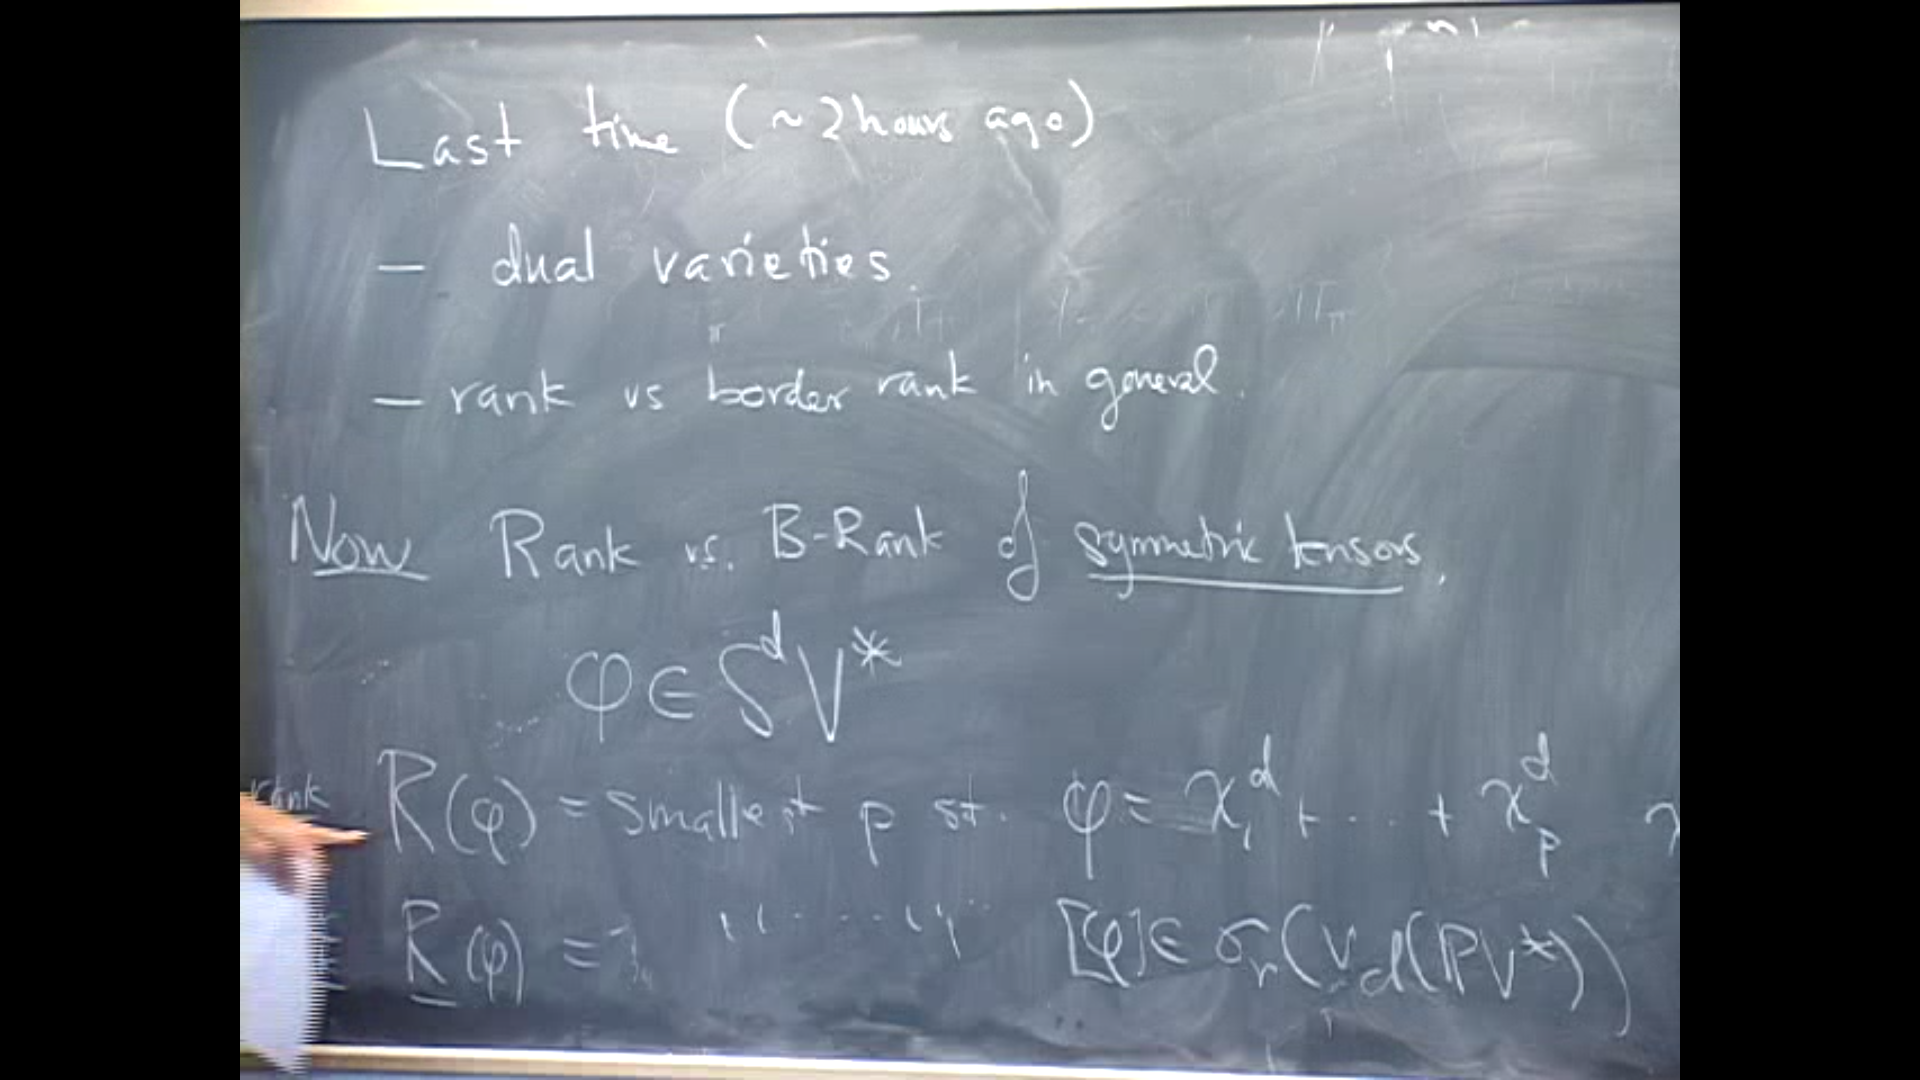 Last time (~2 hours ago)
— dual varieties
— rank vs border rank in general.
Now Rank vs. B-Rank of symmetric tensors.
φ ∈ S^d V*
rank R(φ) = smallest p st. φ = x_1^d + ... + x_p^d
R(φ) = " ... " [φ] ∈ σ_r(v_d(PV*))